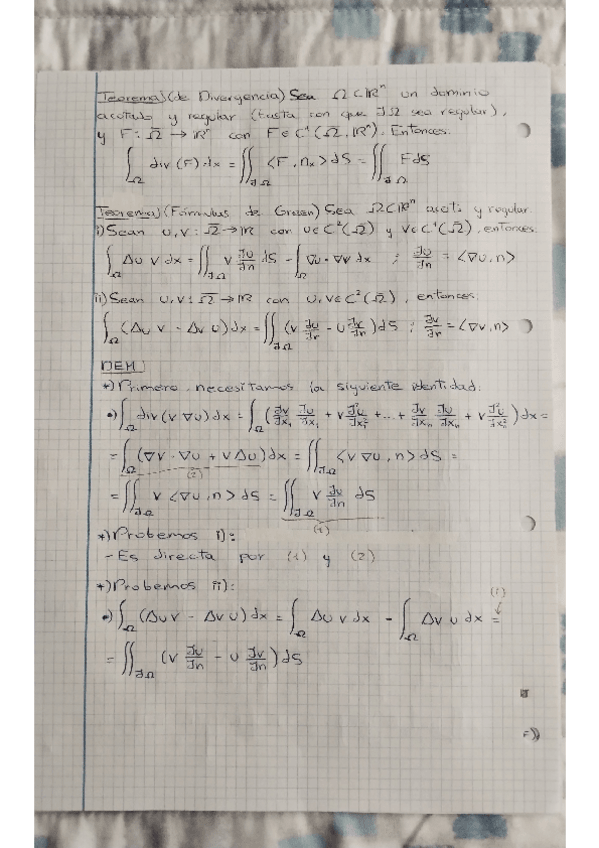 Teorema) (de Divergencia) Sea Ω⊂ℝⁿ un dominio
acotado y regular (basta con que ∂Ω sea regular),
y F: Ω̄ → ℝⁿ con F∈C¹(Ω̄, ℝⁿ). Entonces:
∫_Ω div(F)dx = ∬_∂Ω <F, nₓ> dS = ∬_∂Ω F dS
Teorema) (Fórmulas de Green) Sea Ω⊂ℝⁿ acot. y regular
i) Sean u,v: Ω̄→ℝ con u∈C²(Ω̄) y v∈C¹(Ω̄), entonces:
∫_Ω Δu v dx = ∬_∂Ω v ∂u/∂n dS - ∫_Ω ∇u·∇v dx ; ∂u/∂n = <∇u,n>
ii) Sean u,v: Ω̄→ℝ con u,v∈C²(Ω̄), entonces:
∫_Ω (Δu v - Δv u)dx = ∬_∂Ω (v ∂u/∂n - u ∂v/∂n)dS ; ∂v/∂n = <∇v,n>
DEM)
*) Primero necesitamos la siguiente identidad:
•) ∫_Ω div(v ∇u)dx = ∫_Ω (∂v/∂x₁ ∂u/∂x₁ + v ∂²u/∂x₁² + ... + ∂v/∂xₙ ∂u/∂xₙ + v ∂²u/∂xₙ²)dx =
= ∫_Ω (∇v·∇u + vΔu)dx = ∬_∂Ω <v ∇u, n> dS =
(2)
= ∬_∂Ω v <∇u, n> dS = ∬_∂Ω v ∂u/∂n dS
(1)
*) Probemos i):
- Es directa por (1) y (2)
*) Probemos ii):
(i)
•) ∫_Ω (Δu v - Δv u)dx = ∫_Ω Δu v dx - ∫_Ω Δv u dx =
= ∬_∂Ω (v ∂u/∂n - u ∂v/∂n)dS